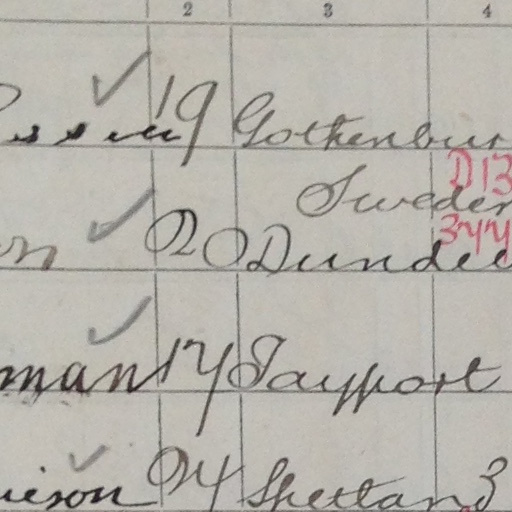 2 3 4
19 Gothenbur
Sweden D13
20 Dundee 344
man 17 Tayport
24 Shetland